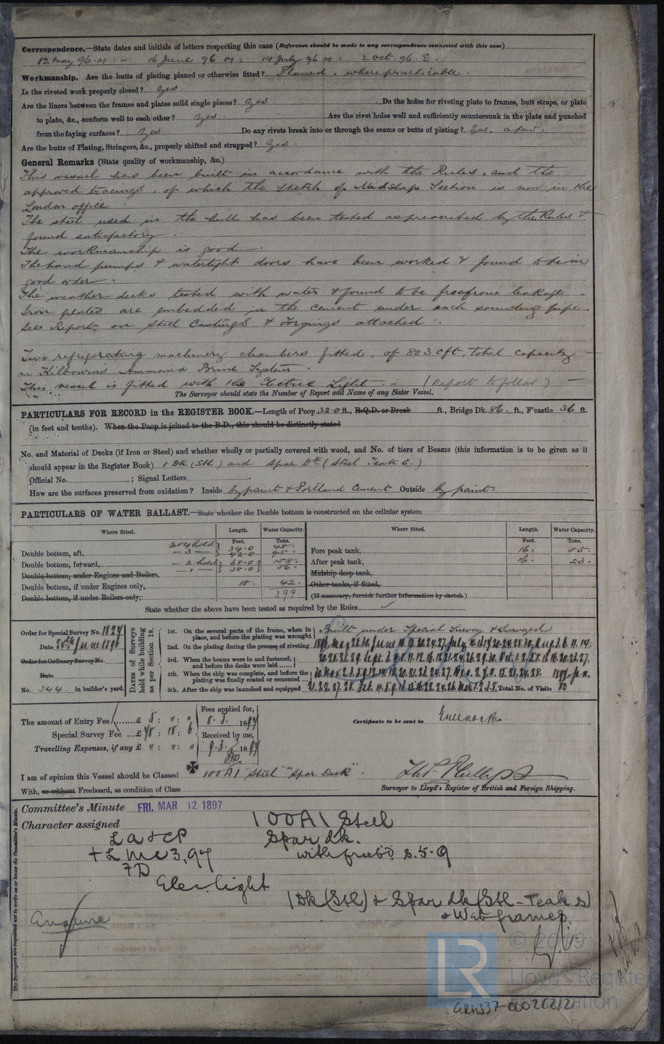 Correspondence.—State dates and initials of letters respecting this case (Reference should be made to any correspondence connected with this case)
12 May 96 M. 16 June 96 M. 14 July 96 M. 2 Oct 96 E.
Workmanship. Are the butts of plating planed or otherwise fitted? Planed, where practicable.
Is the riveted work properly closed? Yes
Are the liners between the frames and plates solid single pieces? Yes. Do the holes for riveting plate to frames, butt straps, or plate
to plate, &c., conform well to each other? Yes Are the rivet holes well and sufficiently countersunk in the plate and punched
from the faying surfaces? Yes. Do any rivets break into or through the seams or butts of plating? Yes. a few.
Are the butts of Plating, Stringers, &c., properly shifted and strapped? Yes.
General Remarks (State quality of workmanship, &c.)
This vessel has been built in accordance with the Rules, and the
approved tracings, of which the sketch of Midships Section is now in the
London office.
The steel used in the hull has been tested as prescribed by the Rules &
found satisfactory.
The workmanship is good.
The hand pumps & watertight doors have been worked & found to be in
good order.
The weather decks tested with water & found to be free from leakage.
Iron plates are embedded in the cement under each sounding pipe.
See Report on Steel Castings & Forgings attached.
Two refrigerating machinery chambers fitted, of 803 cft. total capacity
on Kilbourns Ammonia Brine System.
This vessel is fitted with the Electric Light. (Report to follow)
The Surveyor should state the Number of Report and Name of any Sister Vessel.
PARTICULARS FOR RECORD in the REGISTER BOOK.—Length of Poop 32.0 ft., R.Q.D. or Break ft., Bridge Dk. 86. ft., F'castle 36 ft.
(in feet and tenths). When the Poop is joined to the B.D., this should be distinctly stated
No. and Material of Decks (if Iron or Steel) and whether wholly or partially covered with wood, and No. of tiers of Beams (this information is to be given as it
should appear in the Register Book) 1 Dk (Stl) and Spar Dk (Steel Teak S.)
Official No. ; Signal Letters
How are the surfaces preserved from oxidation? Inside by paint & Portland Cement Outside by paint.
PARTICULARS OF WATER BALLAST.—State whether the Double bottom is constructed on the cellular system
Where fitted. Length. Water Capacity. Where fitted. Length. Water Capacity.
Feet. Tons. Feet. Tons.
Double bottom, aft, Fore peak tank, 16. 55.
Double bottom, forward, After peak tank, 16. 23.
Double bottom, under Engines and Boilers, Midship deep tank,
Double bottom, if under Engines only, 18. 42. Other tanks, if fitted,
Double bottom, if under Boilers only, 399 (If necessary, furnish further information by sketch.)
State whether the above have been tested as required by the Rules
Order for Special Survey No. 1824
Date 20th June 1896
Order for Ordinary Survey No.
Date
No. 344 in builder's yard.
Dates of Surveys held while building as per Section 18.
Built under Special Survey & Surveyed
1st. On the several parts of the frame, when in place, and before the plating was wrought
2nd. On the plating during the process of riveting
3rd. When the beams were in and fastened, and before the decks were laid
4th. When the ship was complete, and before the plating was finally coated or cemented
5th. After the ship was launched and equipped
Total No. of Visits 80
The amount of Entry Fee £ 5 : " : "
Special Survey Fee £ 48 : 18 : 6
Travelling Expenses, if any £ " : " : "
Fees applied for, 8.3. 1897
Received by me, 9.3. 1897
Certificate to be sent to Greenock.
I am of opinion this Vessel should be Classed 100A1 "Steel" "Spar Deck"
With, or without Freeboard, as condition of Class
Surveyor to Lloyd's Register of British and Foreign Shipping.
Committee's Minute FRI. MAR 12 1897
Character assigned 100A1 Steel
Spar dk.
with freebd s. 5-9
LA&CP
+LMC 3,97
7D
Elec. light
1Dk (Stl) & Spar dk (Stl-Teak s)
& Web frames.
© 2019
Lloyd's Register
Foundation